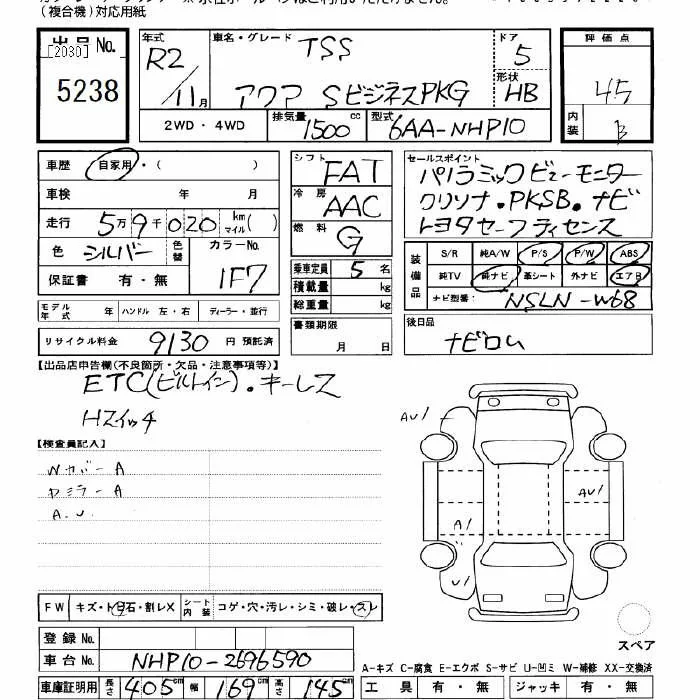 (複合機)対応用紙
出品 No. [2030] 5238
年式 R2/11月
車名・グレード TSS アクア SビジネスPKG
ドア 5
形状 HB
評価点 4.5
内装 B
2WD・4WD 排気量 1500 cc 型式 6AA-NHP10
車歴 自家用・( )
車検 年 月
走行 5万9千020 km マイル( )
色 シルバー 色替 カラーNo. 1F7
保証書 有・無
モデル年式 年 ハンドル 左・右 ディーラー・並行
リサイクル料金 9130 円 預託済
シフト FAT
冷房 AAC
燃料 G
乗車定員 5 名
積載量 kg
総重量 kg
書類期限 月 日
セールスポイント
パノラミックビューモニター
クリソナ・PKSB・ナビ
トヨタセーフティセンス
装備品 S/R 純A/W P/S P/W ABS
純TV 純ナビ 革シート 外ナビ エアB
ナビ型番: NSLN-W68
後日品
ナビロム
【出品店申告欄(不良箇所・欠品・注意事項等)】
ETC(ビルトイン)・キーレス
Hスイッチ
【検査員記入】
Wカバー A
Yミラー A
A.U.
AU1
AU1
A1
U1
スペア
FW キズ・ト石・割レX シート内装 コゲ・穴・汚レ・シミ・破レ・スレ
登録 No.
車台 No. NHP10-2696590
車庫証明用 長さ 405 cm 幅 169 cm 高さ 145 cm
A-キズ C-腐食 E-エクボ S-サビ U-凹ミ W-補修 XX-交換済
工具 有・無 ジャッキ 有・無